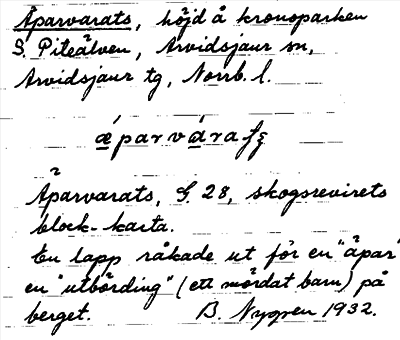 Äparvarats, höjd å kronoparken
S. Piteälven, Arvidsjaur sn,
Arvidsjaur tg, Norrb. l.
Äparvarats, G. 28, skogsrevirets
block-karta.
En lapp råkade ut för en "äpar"
en "utbörding" (ett mördat barn) på
berget. B. Nygren 1932.